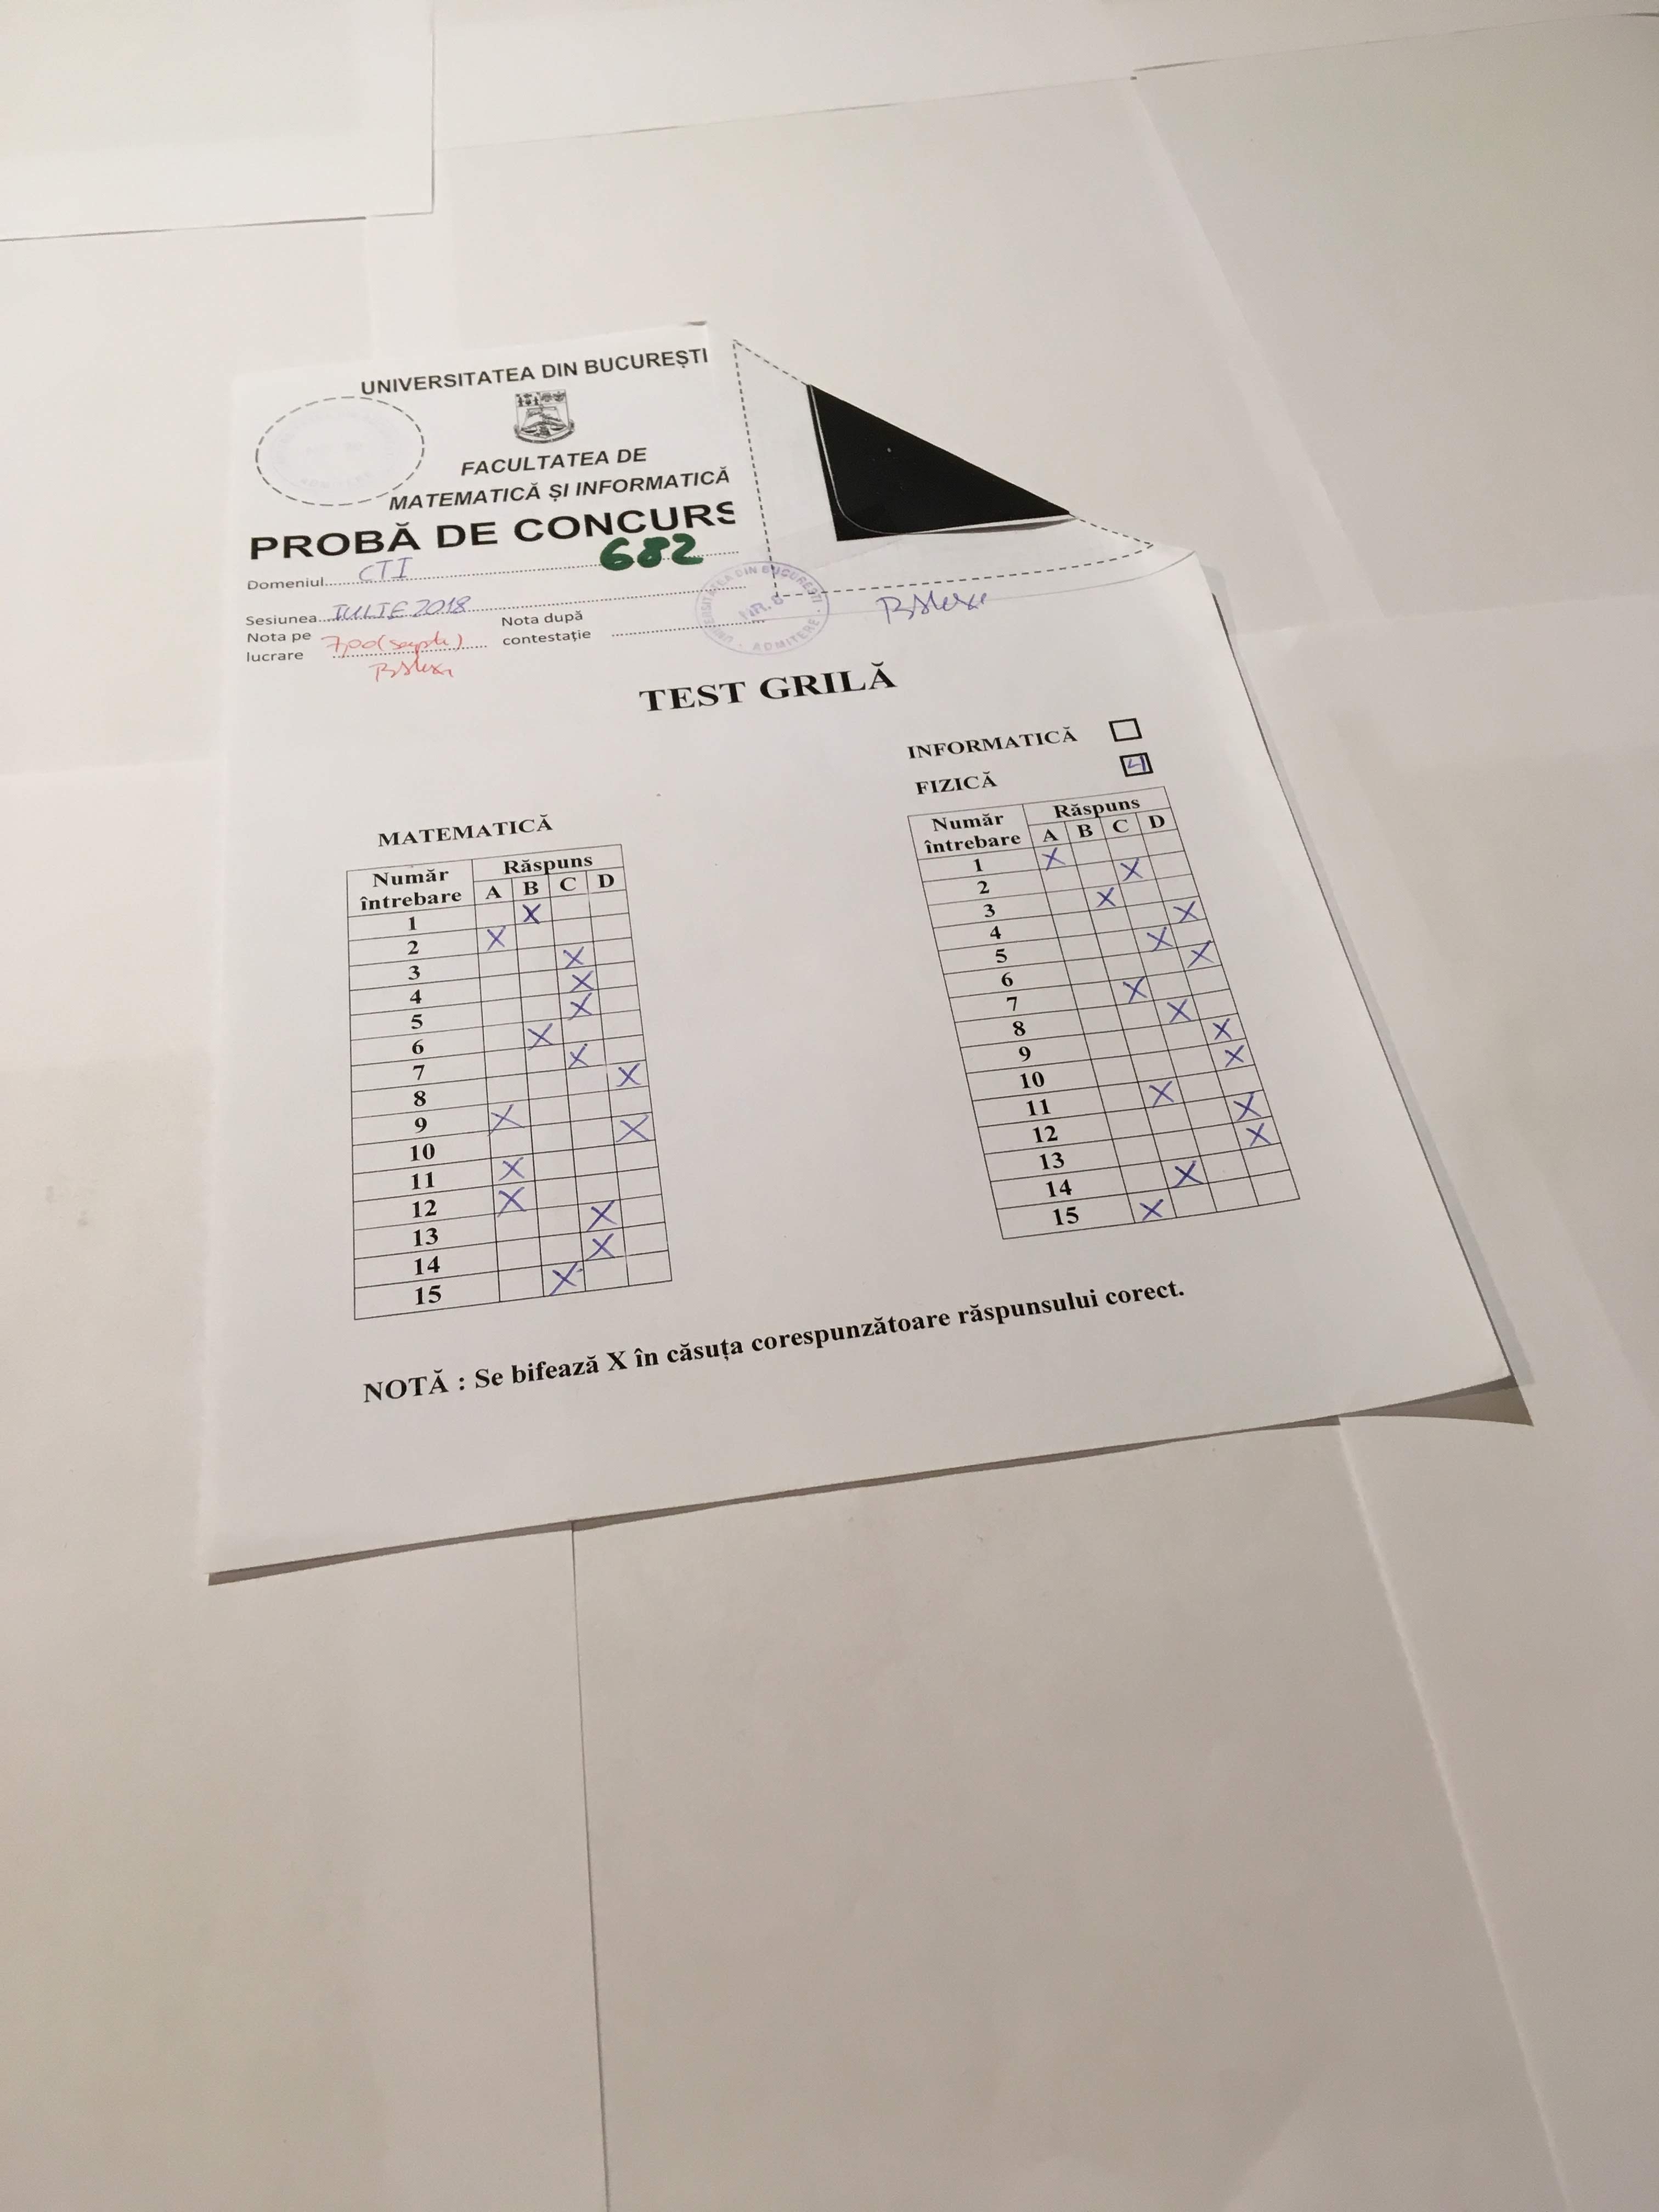 UNIVERSITATEA DIN BUCUREȘTI
FACULTATEA DE
MATEMATICĂ ȘI INFORMATICĂ
PROBĂ DE CONCURS
682
Domeniul CTI
Sesiunea IULIE 2018
Nota pe lucrare 7,00 (șapte)
Nota după contestație
UNIVERSITATEA DIN BUCUREȘTI
ADMITERE
TEST GRILĂ
INFORMATICĂ
FIZICĂ 4
MATEMATICĂ
Număr întrebare Răspuns
A B C D
1 X
2 X
3 X
4 X
5 X
6 X
7 X
8 X
9 X
10 X
11 X
12 X
13 X
14 X
15 X
Număr întrebare Răspuns
A B C D
1 X
2 X
3 X
4 X
5 X
6 X
7 X
8 X
9 X
10 X
11 X
12 X
13 X
14 X
15 X
NOTĂ : Se bifează X în căsuța corespunzătoare răspunsului corect.